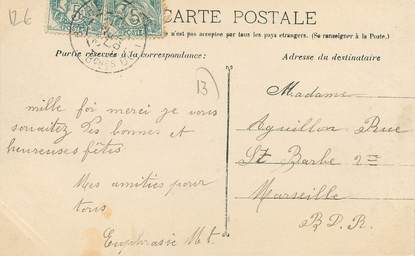 126
CARTE POSTALE
n'est pas acceptée par tous les pays étrangers. (Se renseigner à la Poste.)
Partie réservée à la correspondance:
Adresse du destinataire
13
mille foi merci je vous
souaitez des bonnes et
heureuses fêtes
Mes amitiés pour
tous
Euphrasie Mt.
Madame
Aguillon Rue
St Barbe 2=
Marseille
B.D.R.